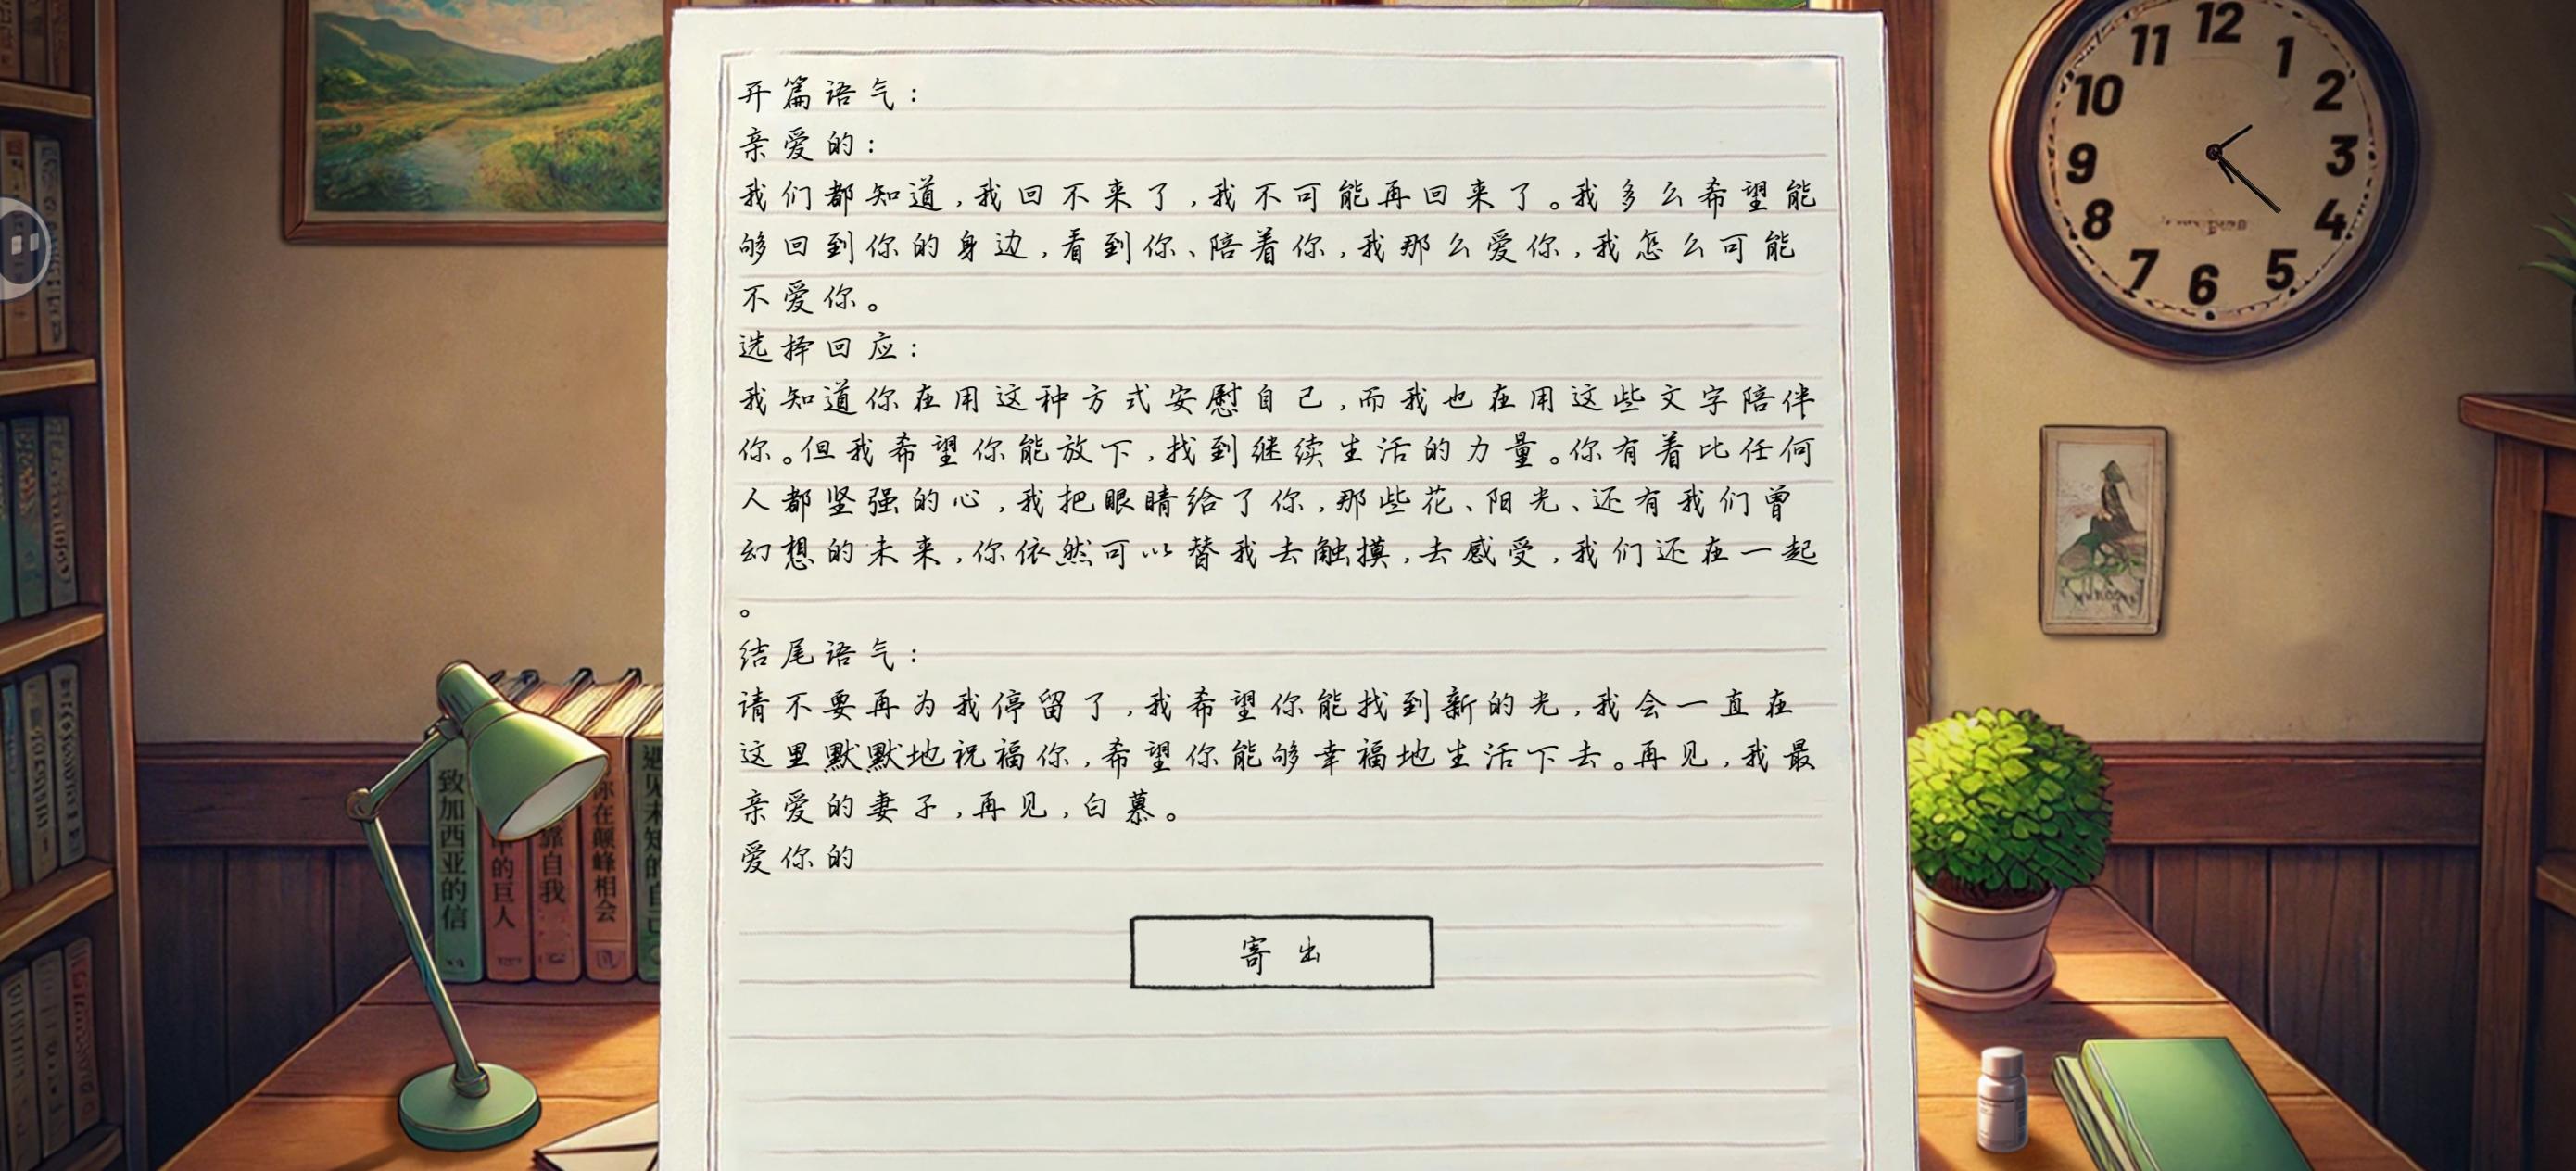 开篇语气:
亲爱的:
我们都知道,我回不来了,我不可能再回来了。我多么希望能
够回到你的身边,看到你、陪着你,我那么爱你,我怎么可能
不爱你。
选择回应:
我知道你在用这种方式安慰自己,而我也在用这些文字陪伴
你。但我希望你能放下,找到继续生活的力量。你有着比任何
人都坚强的心,我把眼睛给了你,那些花、阳光、还有我们曾
幻想的未来,你依然可以替我去触摸,去感受,我们还在一起
。
结尾语气:
请不要再为我停留了,我希望你能找到新的光,我会一直在
这里默默地祝福你,希望你能够幸福地生活下去。再见,我最
亲爱的妻子,再见,白慕。
爱你的
寄出
致加西亚的信
的巨人
靠自我
你在颠峰相会
遇见未知的自己
12
1
2
3
4
5
6
7
8
9
10
11